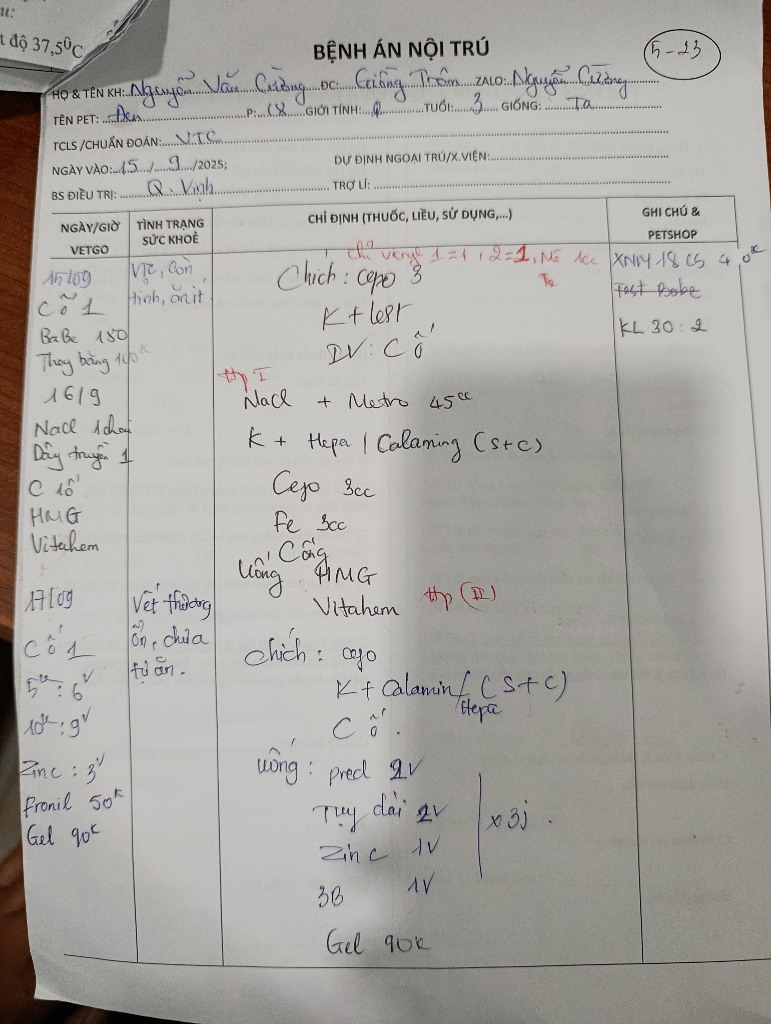 u:
t độ 37,5⁰C
BỆNH ÁN NỘI TRÚ
5-23
HỌ & TÊN KH: Nguyễn Văn Cường ĐC: Giồng Trôm ZALO: Nguyễn Cường
TÊN PET: Đen P: 18 GIỚI TÍNH: ♀ TUỔI: 3 GIỐNG: Ta
TCLS /CHUẨN ĐOÁN: VTC
NGÀY VÀO: 15 / 9 /2025; DỰ ĐỊNH NGOẠI TRÚ/X.VIỆN:
BS ĐIỀU TRỊ: Q. Vinh TRỢ LÍ:
NGÀY/GIỜ VETGO
TÌNH TRẠNG SỨC KHOẺ
CHỈ ĐỊNH (THUỐC, LIỀU, SỬ DỤNG,...)
GHI CHÚ & PETSHOP
15/09
Cố 1
BaBe 150
Thay băng 100K
VTC, còn
tỉnh, ăn ít.
1=1, 2=1, Mê 1cc
Chích: cepo 3
K + lest
DV: C ố
XNM 18 CS 4
Test Babe
KL 30: 2
16/9
Nacl 1 chai
Dây truyền 1
C 1ố
HMG
Vitahem
ttp I
Nacl + Metro 45cc
K + Hepa / Calaming (S+C)
Cepo 3cc
Fe 3cc
Cống
Uống HMG
Vitahem ttp (II)
17/09
Cố 1
5K: 6V
10K: 9V
Zinc: 3V
Fronil 50K
Gel 90K
Vết thương
ổn, chưa
tự ăn.
Chích: cepo
K + Calamin / (S+C)
Hepa
C ố.
Uống: pred 2V
Tụy dài 2V
Zinc 1V
3B 1V
x 3j.
Gel 90K